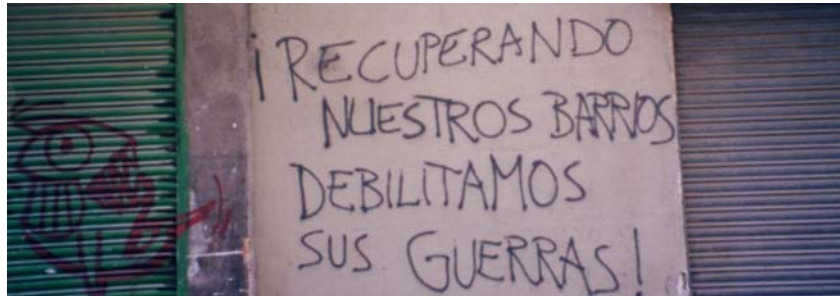 ¡RECUPERANDO
NUESTROS BARRIOS
DEBILITAMOS
SUS GUERRAS!